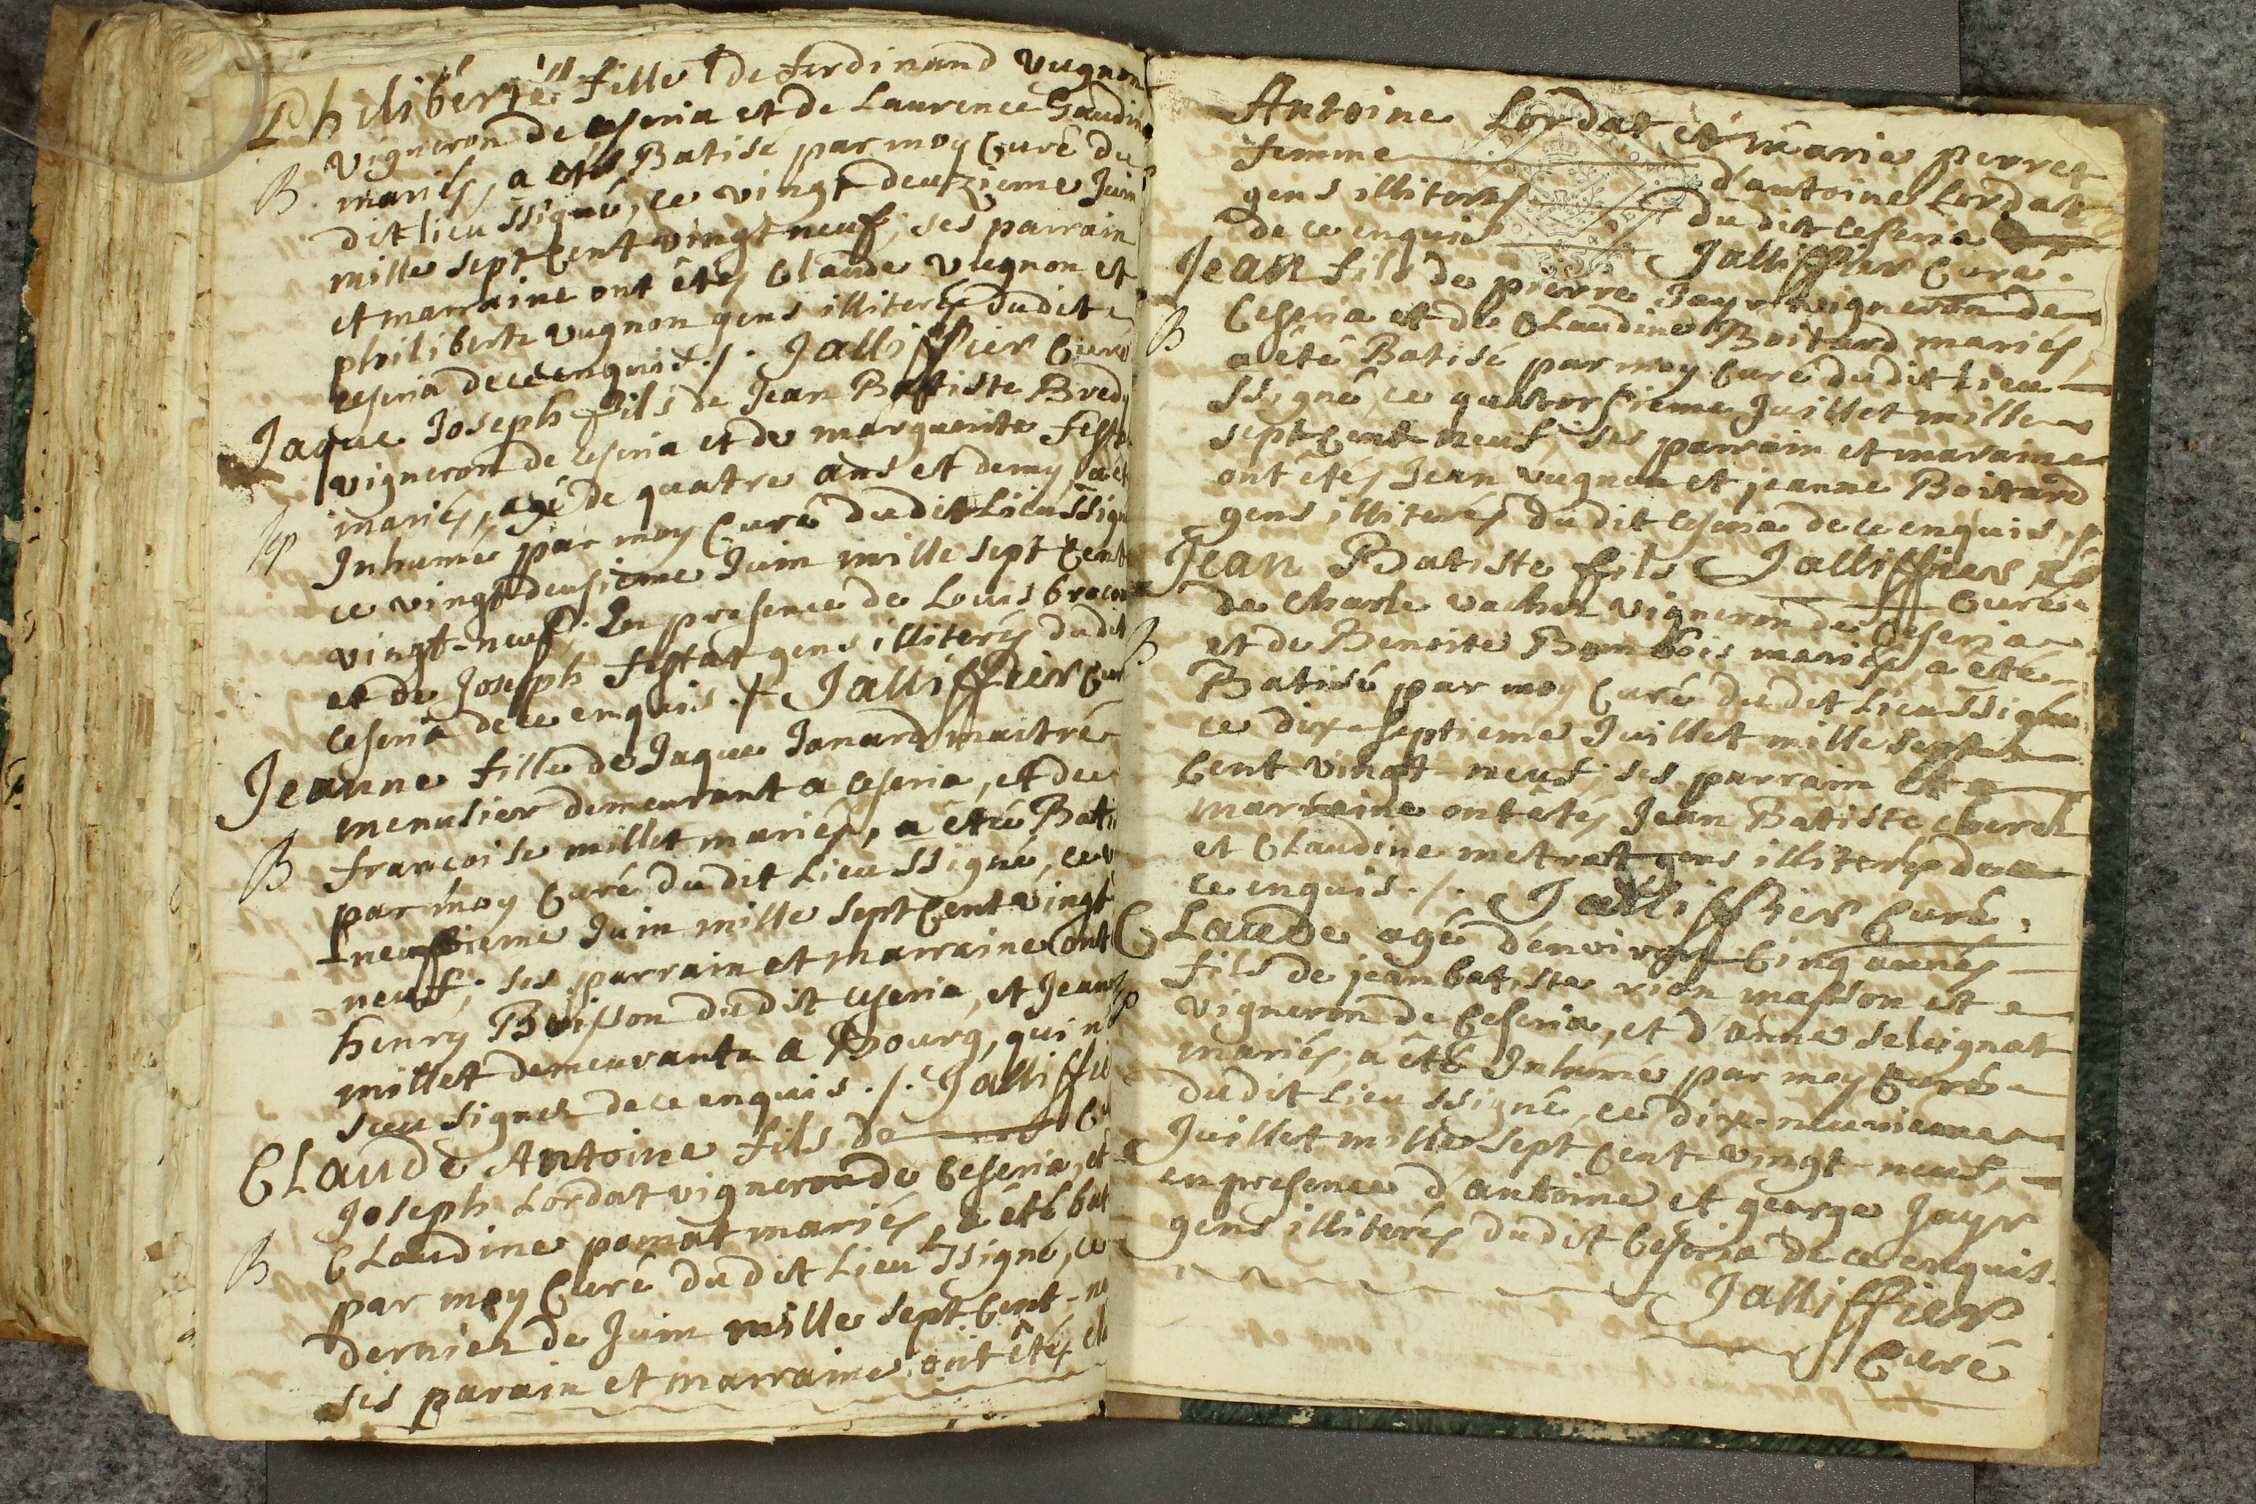 Philiberte fille de ferdinand vugnon
vigneron de ceseria et de Laurence Gaudin
B mariés, a eté Batisé par moy Curé du
dit lieu ssigné, ce vingt deuzieme Juin
mille sept Cent vingt neuf, ses parrain
et marraine ont êtés Claude vugnon et
philiberte vugnon gens illiterés dudit
ceseria de ce enquis ./. Jalliffier Curé
Jaque Joseph fils de Jean Batiste Bred
vigneron de ceseria et de marguerite
mariés, agé de quatre ans et demy a et
Sep Inhumé par moy Curé dudit Lieu ssigné
ce vingt deusieme Juin mille sept Cent
vingt-neuf. En presence de Louis
et de Joseph festat gens illiterés dudit
ceseria de ce enquis ./. Jalliffier Cur
Jeanne fille de Jaque Janard maitre
menusier demeurant a ceseria, et de
B francoise millet mariés, a été Bati
par moy Curé dudit Lieu ssigné, ce v
neuffieme Juin mille sept Cent vingt
neuf; ses parrain et marraine ont
henry Buisson dudit ceseria, et Jeanne
millet demeurante a Bourg, qui n
sceu signer de ce enquis ./. Jalliffie
CLaude Antoine fils de Cu
Joseph Lordat vigneron de Ceseria, et
B CLaudine pomat mariés, a êté bat
par moy Curé dudit Lieu ssigné, ce
dernier de Juin mille sept Cent - ne
ses parain et marraine ont êtés
Antoine Lordat et marie perret
femme d'antoine Lordat
gens illiterés dudit ceseria
de ce enquis Jalliffier Curé.
Jean fils de pierre Jayr vigneron de
B Ceseria et de CLaudine Boitard mariés,
a été Batisé par moy Curé dudit Lieu
ssigné, ce quatorsieme Juillet mille
sept Cent neuf, ses parrain et maraine
ont êtés Jean vugnon et jeanne Boitard
gens illiterés dudit ceseria de ce enquis ./.
Jean Batiste fils Jalliffier
Curé.
de Charle vacher vigneron de Ceseria
B et de Benoite Bombois mariés, a eté
Batisé par moy Curé dudit Lieu ssigné
ce dix-septieme Juillet mille sept
Cent vingt-neuf; ses parrain et
marraine ont êtés Jean Batiste Cherel
et CLaudine metrat gens illiterés de
ce enquis ./. Jalliffier Curé.
CLaude agé d'environ Cinq années
fils de jean batiste rion masson et
Sep vigneron de Ceseria, et d'anne seleignat
mariés, a êté Inhumé par moy Curé
dudit Lieu ssigné, ce dix-neuvieme
Juillet mille sept Cent-vingt-neuf,
en presence d'antoine et george Jayr
gens illiterés dudit Ceseria de ce enquis.
Jalliffier
Curé